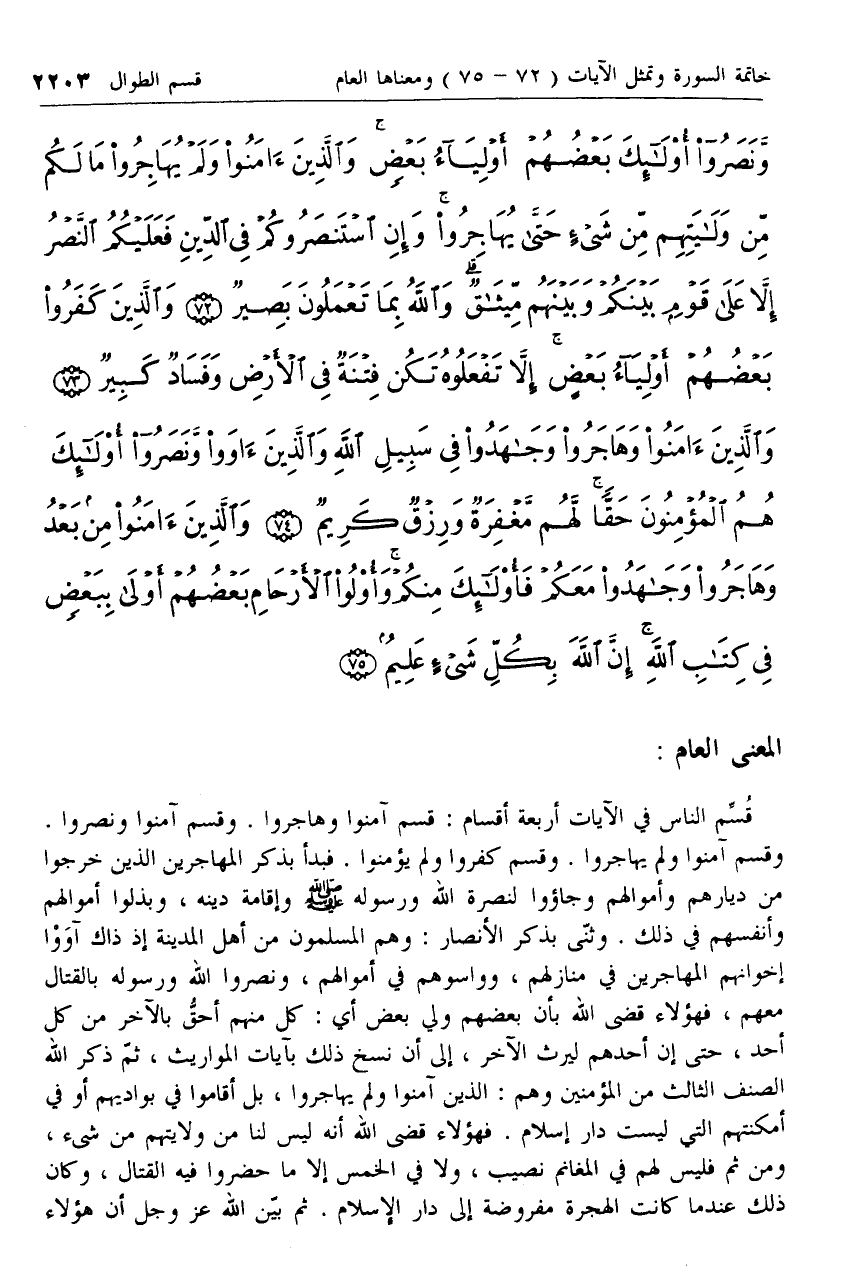 خاتمة السورة وتمثل الآيات ( ٧٢ – ٧٥ ) ومعناها العام قسم الطوال ٢٢٠٣
وَّنَصَرُوٓا۟ أُو۟لَـٰٓئِكَ بَعْضُهُمْ أَوْلِيَآءُ بَعْضٍ ۚ وَٱلَّذِينَ ءَامَنُوا۟ وَلَمْ يُهَاجِرُوا۟ مَا لَكُم
مِّن وَلَـٰيَتِهِم مِّن شَىْءٍ حَتَّىٰ يُهَاجِرُوا۟ ۚ وَإِنِ ٱسْتَنصَرُوكُمْ فِى ٱلدِّينِ فَعَلَيْكُمُ ٱلنَّصْرُ
إِلَّا عَلَىٰ قَوْمٍۭ بَيْنَكُمْ وَبَيْنَهُم مِّيثَـٰقٌ ۗ وَٱللَّهُ بِمَا تَعْمَلُونَ بَصِيرٌ ﴿٧٢﴾ وَٱلَّذِينَ كَفَرُوا۟
بَعْضُهُمْ أَوْلِيَآءُ بَعْضٍ ۚ إِلَّا تَفْعَلُوهُ تَكُن فِتْنَةٌ فِى ٱلْأَرْضِ وَفَسَادٌ كَبِيرٌ ﴿٧٣﴾
وَٱلَّذِينَ ءَامَنُوا۟ وَهَاجَرُوا۟ وَجَـٰهَدُوا۟ فِى سَبِيلِ ٱللَّهِ وَٱلَّذِينَ ءَاوَوا۟ وَّنَصَرُوٓا۟ أُو۟لَـٰٓئِكَ
هُمُ ٱلْمُؤْمِنُونَ حَقًّا ۚ لَّهُم مَّغْفِرَةٌ وَرِزْقٌ كَرِيمٌ ﴿٧٤﴾ وَٱلَّذِينَ ءَامَنُوا۟ مِنۢ بَعْدُ
وَهَاجَرُوا۟ وَجَـٰهَدُوا۟ مَعَكُمْ فَأُو۟لَـٰٓئِكَ مِنكُمْ ۚ وَأُو۟لُوا۟ ٱلْأَرْحَامِ بَعْضُهُمْ أَوْلَىٰ بِبَعْضٍ
فِى كِتَـٰبِ ٱللَّهِ ۚ إِنَّ ٱللَّهَ بِكُلِّ شَىْءٍ عَلِيمٌۢ ﴿٧٥﴾
المعنى العام :
قُسِّم الناس في الآيات أربعة أقسام : قسم آمنوا وهاجروا . وقسم آمنوا ونصروا .
وقسم آمنوا ولم يهاجروا . وقسم كفروا ولم يؤمنوا . فبدأ بذكر المهاجرين الذين خرجوا
من ديارهم وأموالهم وجاؤوا لنصرة الله ورسوله ﷺ وإقامة دينه ، وبذلوا أموالهم
وأنفسهم في ذلك . وثنّى بذكر الأنصار : وهم المسلمون من أهل المدينة إذ ذاك آوَوْا
إخوانهم المهاجرين في منازلهم ، وواسوهم في أموالهم ، ونصروا الله ورسوله بالقتال
معهم ، فهؤلاء قضى الله بأن بعضهم ولي بعض أي : كل منهم أحقُّ بالآخر من كل
أحد ، حتى إن أحدهم ليرث الآخر ، إلى أن نسخ ذلك بآيات المواريث ، ثمّ ذكر الله
الصنف الثالث من المؤمنين وهم : الذين آمنوا ولم يهاجروا ، بل أقاموا في بواديهم أو في
أمكنتهم التي ليست دار إسلام . فهؤلاء قضى الله أنه ليس لنا من ولايتهم من شيء ،
ومن ثم فليس لهم في المغانم نصيب ، ولا في الخمس إلا ما حضروا فيه القتال ، وكان
ذلك عندما كانت الهجرة مفروضة إلى دار الإسلام . ثم بيّن الله عز وجل أن هؤلاء